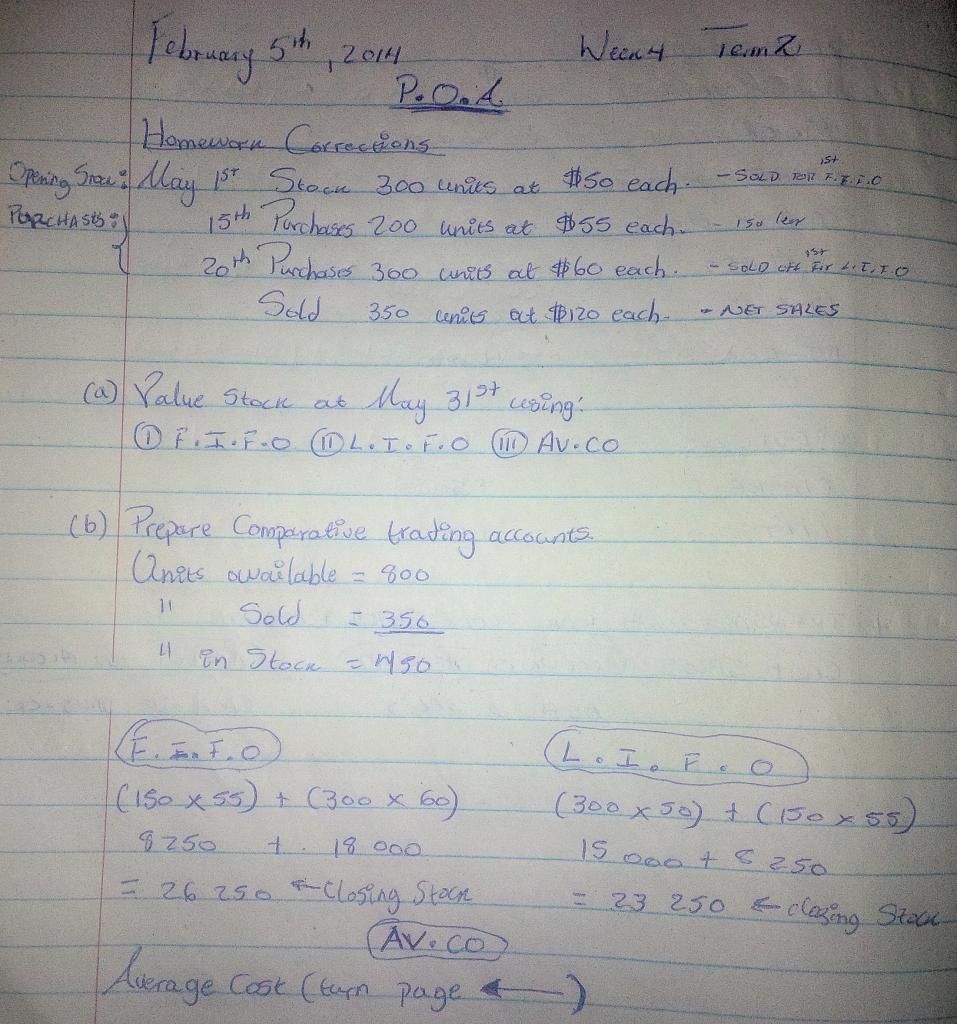 February 5th, 2014 Week 4 Term 2
P.O.A
Homework Corrections
Opening Stock: May 1st Stock 300 units at $50 each. - SOLD FOR F.I.F.O 1st
PURCHASES: 15th Purchases 200 units at $55 each. - 150 left
20th Purchases 300 units at $60 each. - SOLD off 1st For L.I.F.O
Sold 350 units at $120 each. - NET SALES
(a) Value Stock at May 31st using:
(I) F.I.F.O (II) L.I.F.O (III) AV.CO
(b) Prepare Comparative trading accounts.
Units available = 800
" Sold = 350
" in Stock = 450
F.I.F.O L.I.F.O
(150 x 55) + (300 x 60) (300 x 50) + (150 x 55)
8250 + 18 000 15 000 + 8 250
= 26 250 ← Closing Stock = 23 250 ← closing Stock
AV.CO
Average Cost (turn page ←)